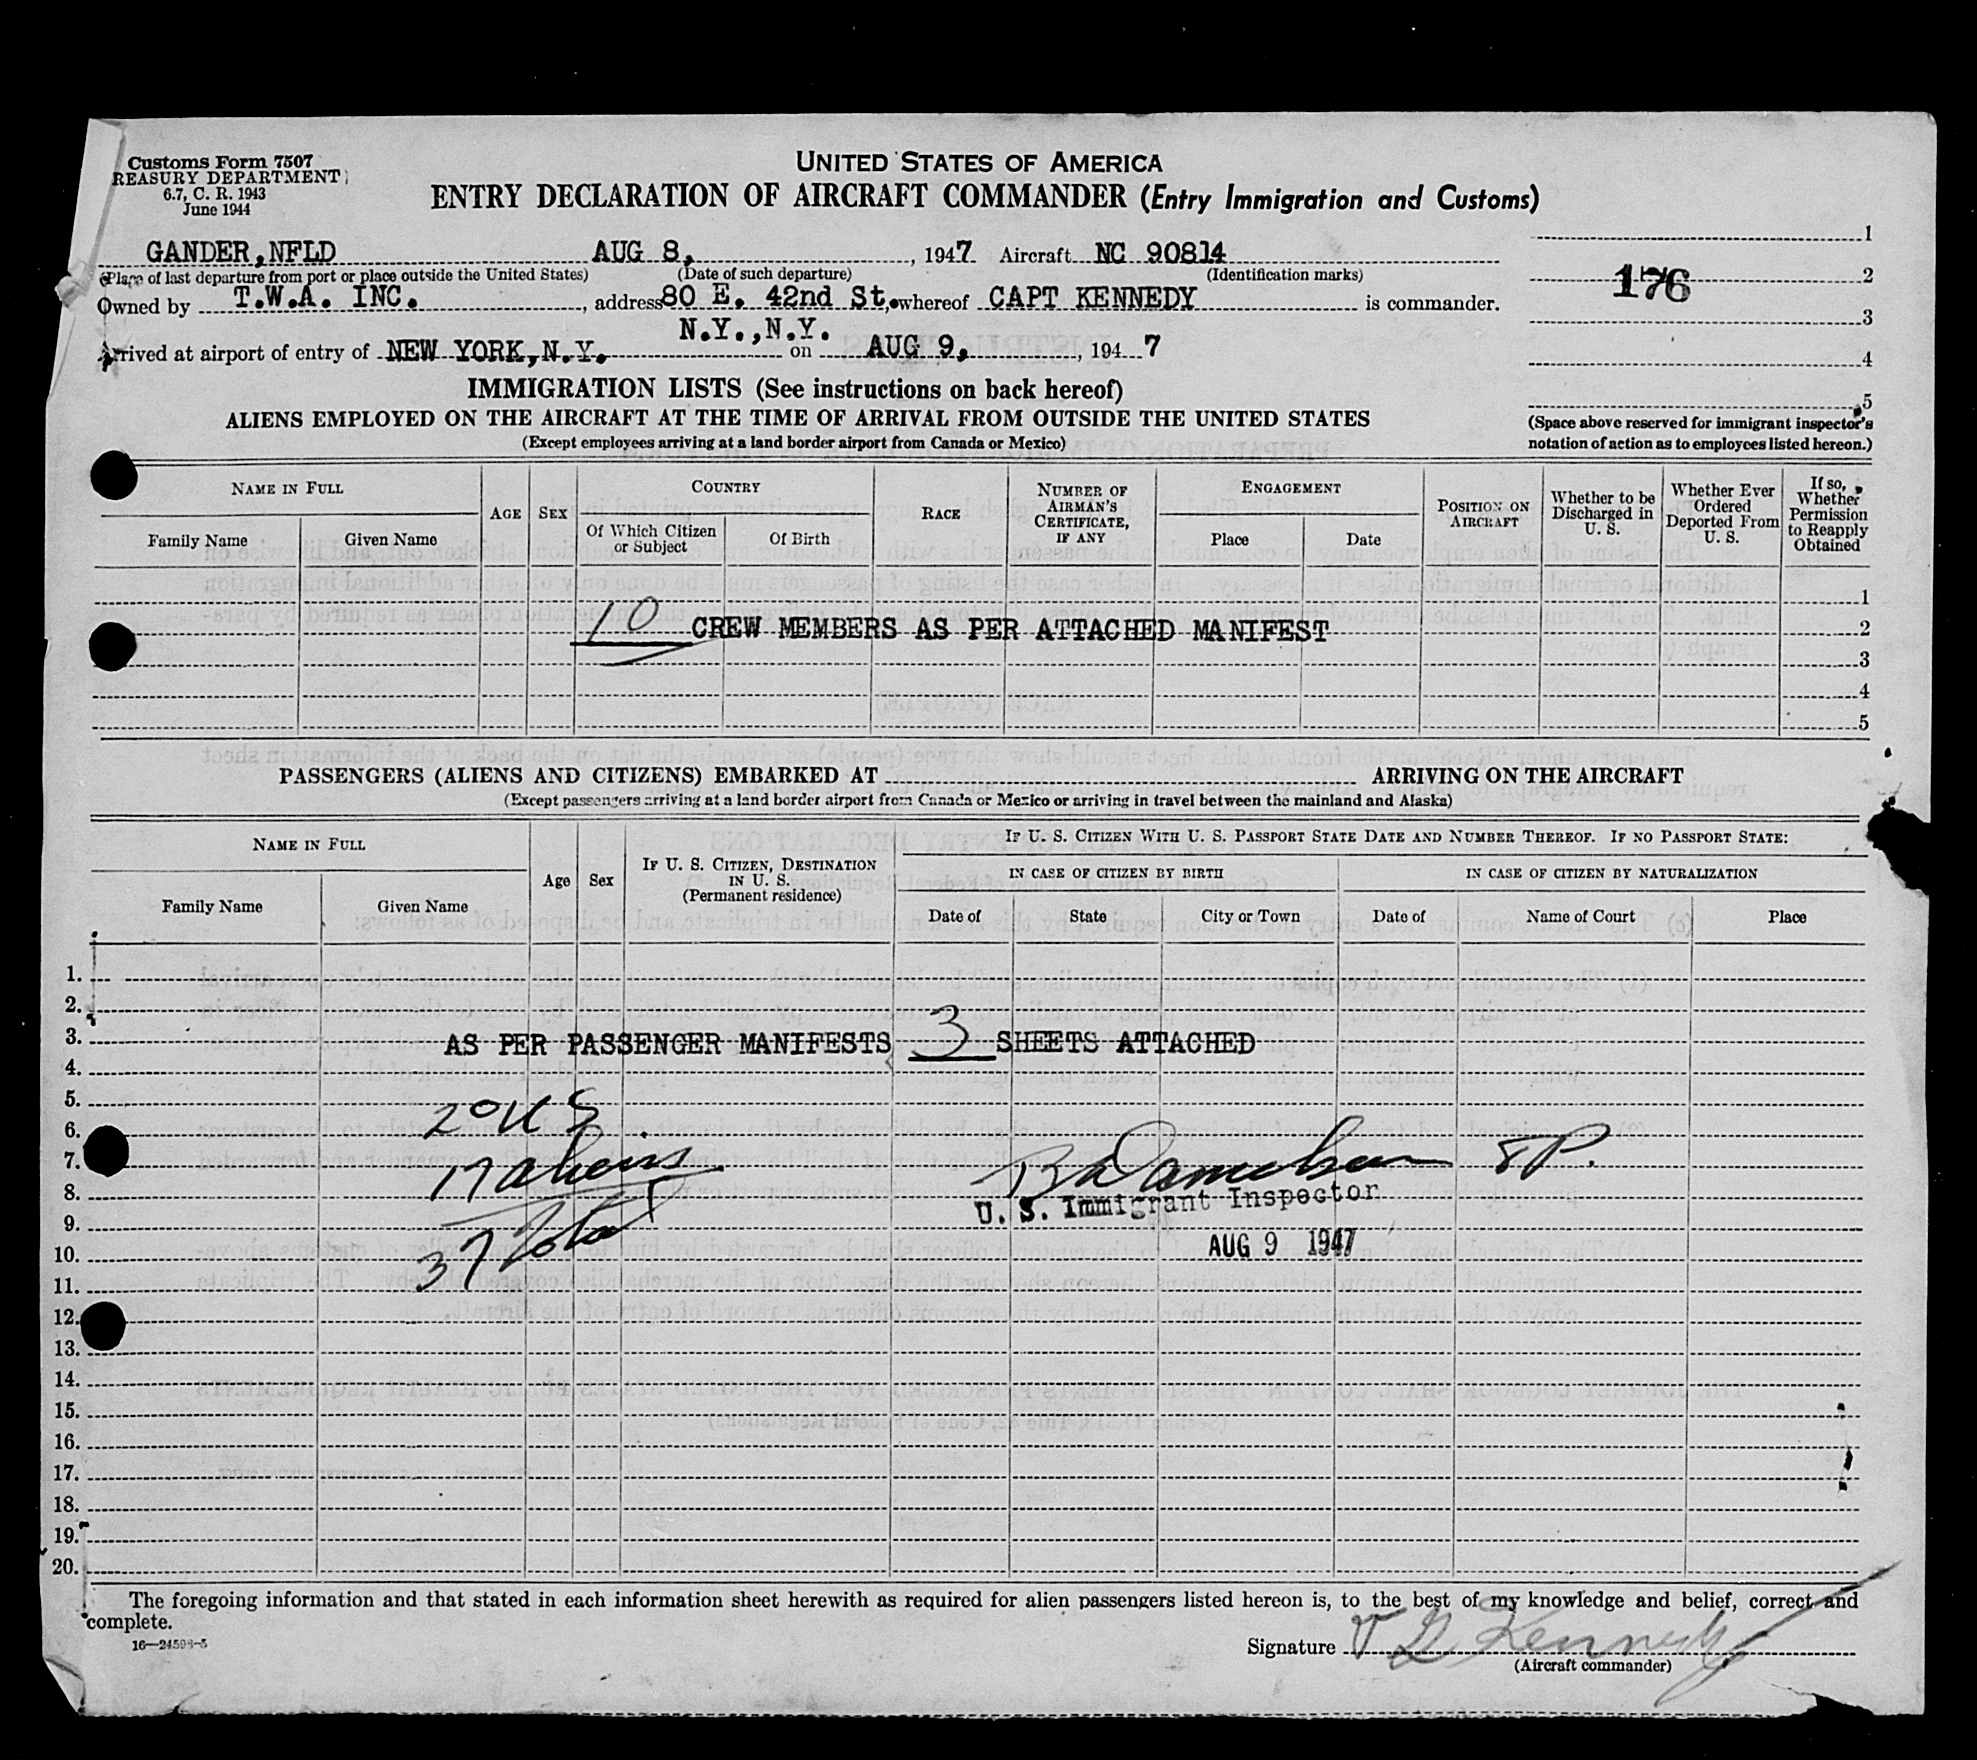 Customs Form 7507
REASURY DEPARTMENT
6.7, C. R. 1943
June 1944
UNITED STATES OF AMERICA
ENTRY DECLARATION OF AIRCRAFT COMMANDER (Entry Immigration and Customs)
GANDER, NFLD AUG 8, , 1947 Aircraft NC 90814
(Place of last departure from port or place outside the United States) (Date of such departure) (Identification marks)
Owned by T.W.A. INC. , address 80 E. 42nd St., whereof CAPT KENNEDY is commander.
N.Y., N.Y.
Arrived at airport of entry of NEW YORK, N.Y. on AUG 9, , 1947
1
2
176
3
4
5
(Space above reserved for immigrant inspector's
notation of action as to employees listed hereon.)
IMMIGRATION LISTS (See instructions on back hereof)
ALIENS EMPLOYED ON THE AIRCRAFT AT THE TIME OF ARRIVAL FROM OUTSIDE THE UNITED STATES
(Except employees arriving at a land border airport from Canada or Mexico)
NAME IN FULL
Family Name Given Name
AGE SEX
COUNTRY
Of Which Citizen or Subject Of Birth
RACE
NUMBER OF AIRMAN'S CERTIFICATE, IF ANY
ENGAGEMENT
Place Date
POSITION ON AIRCRAFT
Whether to be Discharged in U. S.
Whether Ever Ordered Deported From U. S.
If so, Whether Permission to Reapply Obtained
1
10 CREW MEMBERS AS PER ATTACHED MANIFEST 2
3
4
5
PASSENGERS (ALIENS AND CITIZENS) EMBARKED AT ARRIVING ON THE AIRCRAFT
(Except passengers arriving at a land border airport from Canada or Mexico or arriving in travel between the mainland and Alaska)
NAME IN FULL
Family Name Given Name
Age Sex
IF U. S. CITIZEN, DESTINATION IN U. S. (Permanent residence)
IF U. S. CITIZEN WITH U. S. PASSPORT STATE DATE AND NUMBER THEREOF. IF NO PASSPORT STATE:
IN CASE OF CITIZEN BY BIRTH IN CASE OF CITIZEN BY NATURALIZATION
Date of State City or Town Date of Name of Court Place
1.
2.
3. AS PER PASSENGER MANIFESTS 3 SHEETS ATTACHED
4.
5.
20 U S
6.
7. 17 aliens
8.
U. S. Immigrant Inspector
9.
37 Total
AUG 9 1947
10.
11.
12.
13.
14.
15.
16.
17.
18.
19.
20.
The foregoing information and that stated in each information sheet herewith as required for alien passengers listed hereon is, to the best of my knowledge and belief, correct and
complete.
Signature Kennedy
(Aircraft commander)